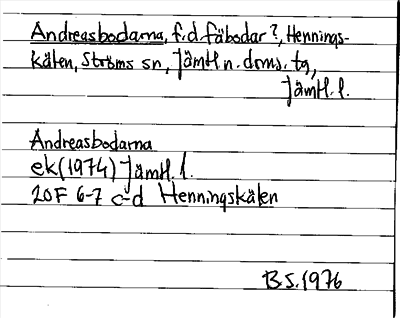 Andreasbodarna, f.d. fäbodar?, Hennings-
kälen, Ströms sn, Jämtl n. doms. tg,
Jämtl. l.
Andreasbodarna
ek (1974) Jämtl. l.
20F 6-7 c-d Henningskälen
B S. 1976